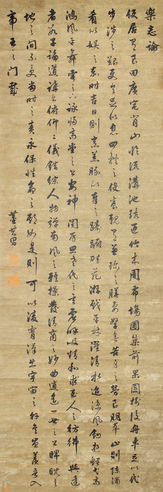 樂志論
使居有良田廣宅背山臨流溝池環匝竹木周布場圃築前果園樹後舟車足以代
步涉之難使令足以息四體之役養親有兼珍之膳妻孥無苦身之勞良朋萃止則陳酒
肴以娛之嘉時吉日則烹羔豚以奉之躊躇畦苑遊戲平林濯清水追涼風釣游鯉弋高
鴻風於舞雩之下詠歸高堂之上安神閨房思老氏之玄虛呼吸精和求至人之彷彿與達
者數子論道講書俯仰二儀錯綜人物彈南風之雅操發清商之妙曲逍遙一世之上睥睨天
地之間不受當時之責永保性命之期如是則可以凌霄漢出宇宙之外矣豈羨夫入
帝王之門哉
董其昌